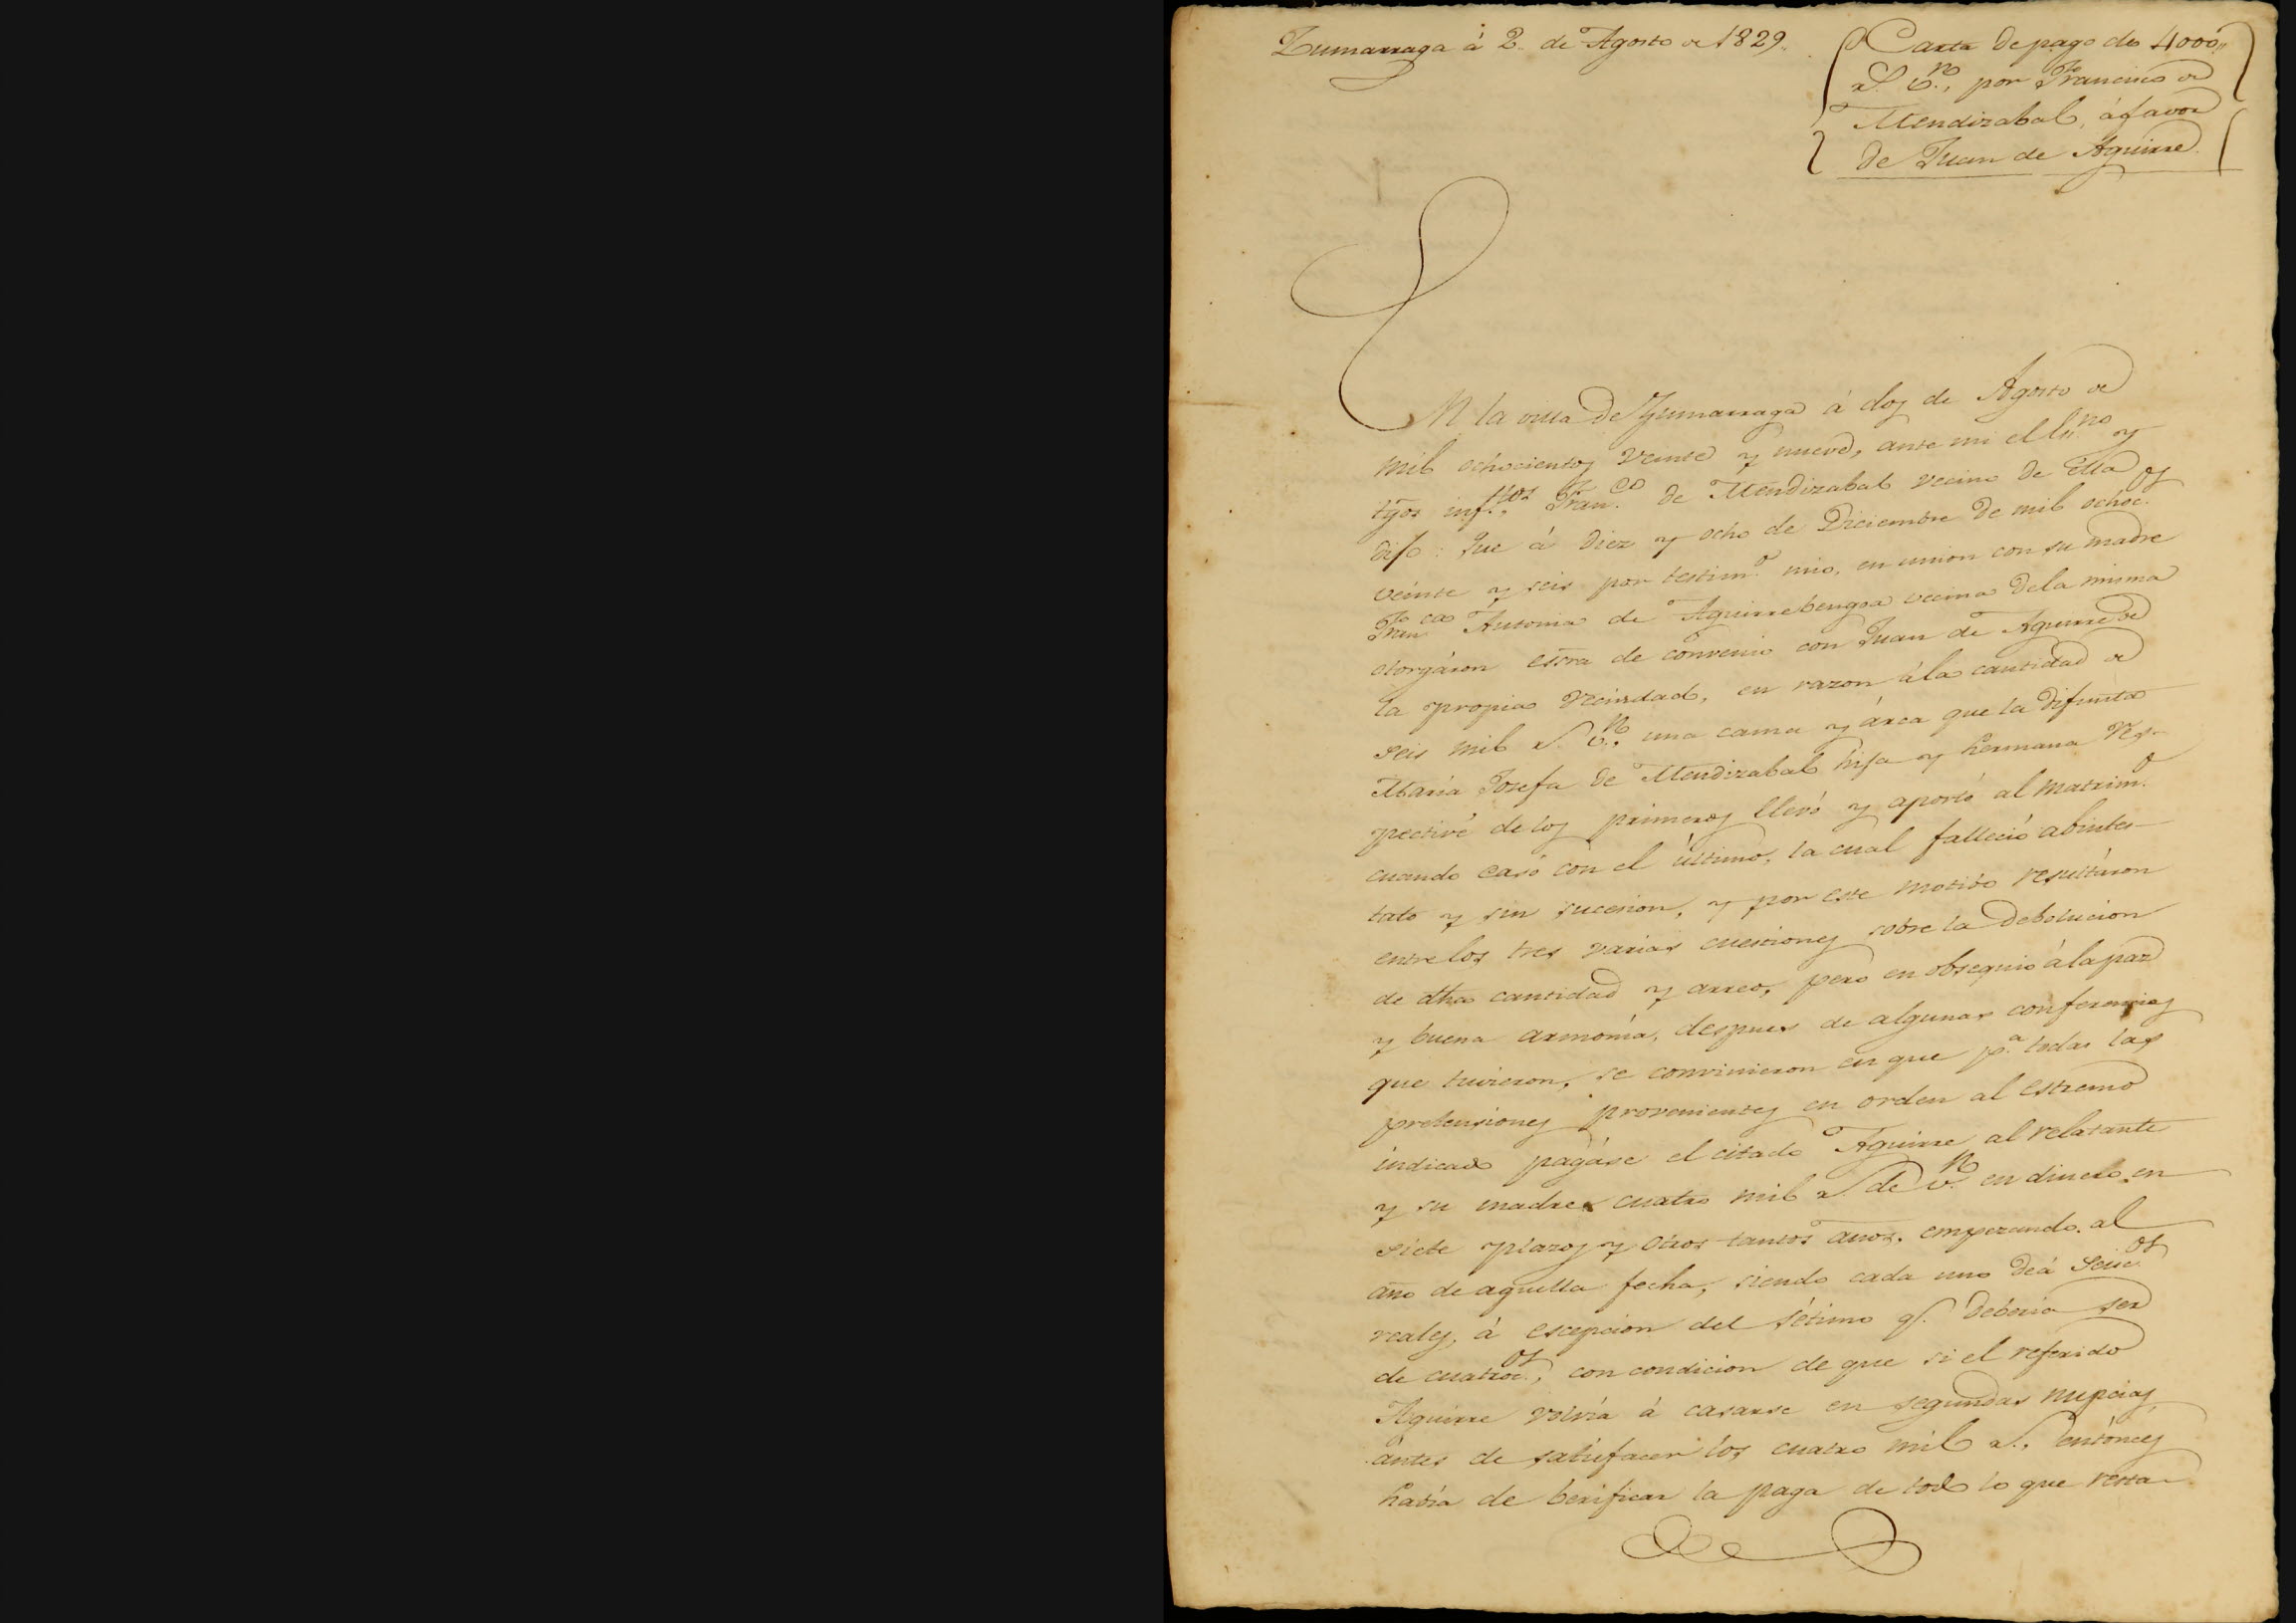 Zumarraga á 2. de Agosto de 1829.
Carta de pago de 4000,,
rs. vn., por Francisco de
Mendizabal, á favor
de Juan de Aguirre.
En la villa de Zumarraga á dos de Agosto de
mil ochocientos veinte y nueve, ante mi el Esno. y
tgos. infttos. Franco. de Mendizabal vecino de ella
dijo: Que á diez y ocho de Diciembre de mil ochocos.
veinte y seis por testimo. mio, en union con su madre
Franca. Antonia de Aguirrebengoa vecina dela misma
otorgáron esra. de convenio con Juan de Aguirre de
la propia vecindad, en razon ála cantidad de
seis mil rs. vn., una cama y árca que la difunta
María Josefa de Mendizabal hija y hermana res-
pective de los primeros llevó y aportó al matrimo.
cuando casó con el último, la cual falleció abintes-
tato y sin sucesion, y por este motibo resultáron
entre los tres varias cuestiones sobre la debolucion
de dha cantidad y arreo, pero en obsequio ála paz
y buena armonía, despues de algunas conferencias
que tuvieron, se convinieron en que pa. todas las
pretensiones provenientes en orden al estremo
indicado pagáse el citado Aguirre al relatante
y su madre cuatro mil rs. de vn. en dinero en
siete plazos y otros tantos anos, empezando al
ano de aquella fecha, siendo cada uno deá seiscos.
reales, á escepcion del sétimo q. deberia ser
de cuatrocos., con condicion de que si el referido
Aguirre volvia á casarse en segundas nupcias
ántes de satisfacer los cuatro mil rs., entónces
habia de berificar la paga de todo lo que resta-